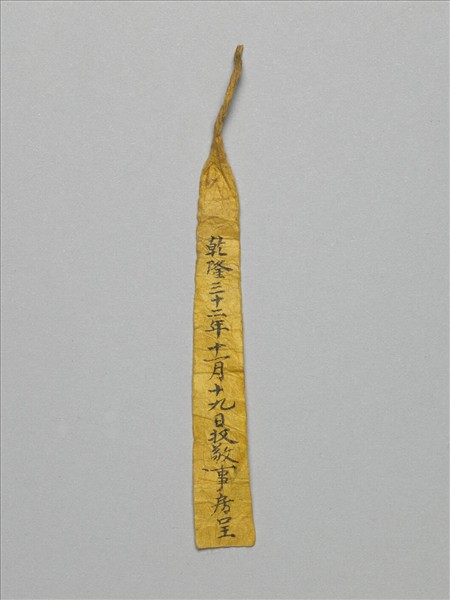 乾隆三十二年十一月十九日收敬事房呈